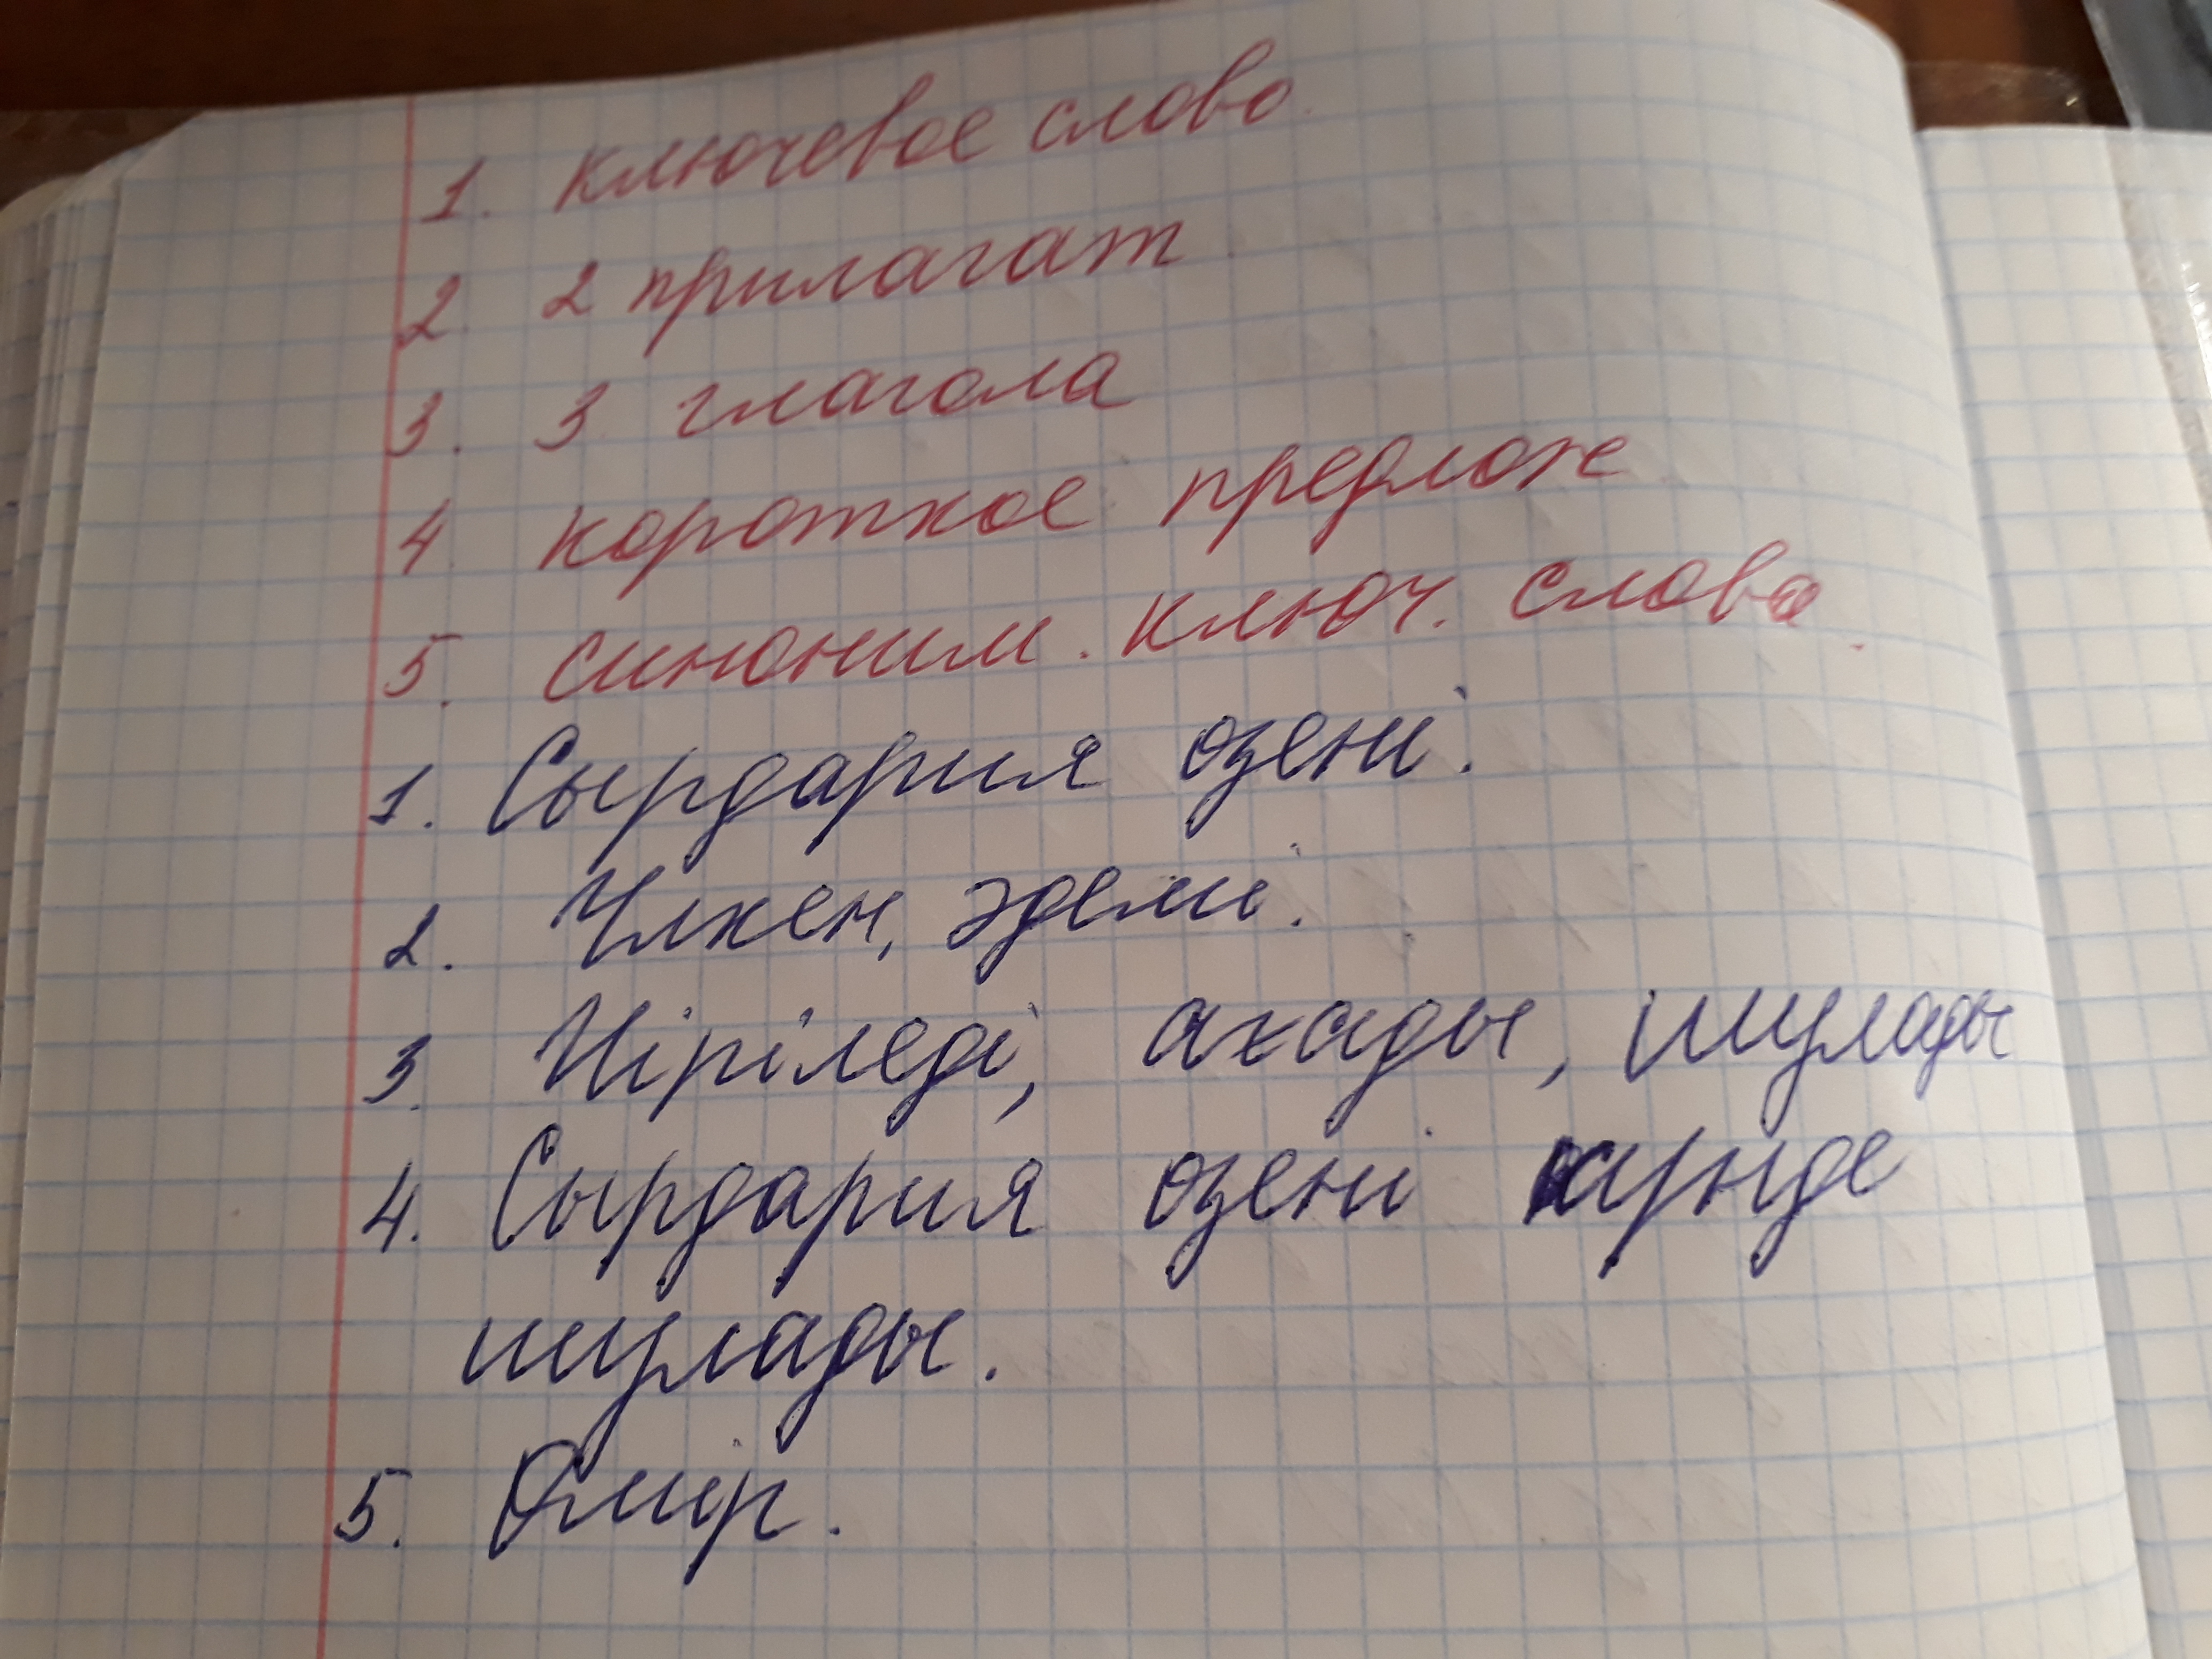 1. ключевое слово
2. 2 прилагат
3. 3 глагола
4 короткое предлож
5. синоним. ключ. слова.
1. Сырдария өзені.
2. Үлкен, әдемі.
3. Иіріледі, ағады, шулады
4. Сырдария өзені күнде
шулады.
5. Өмір.